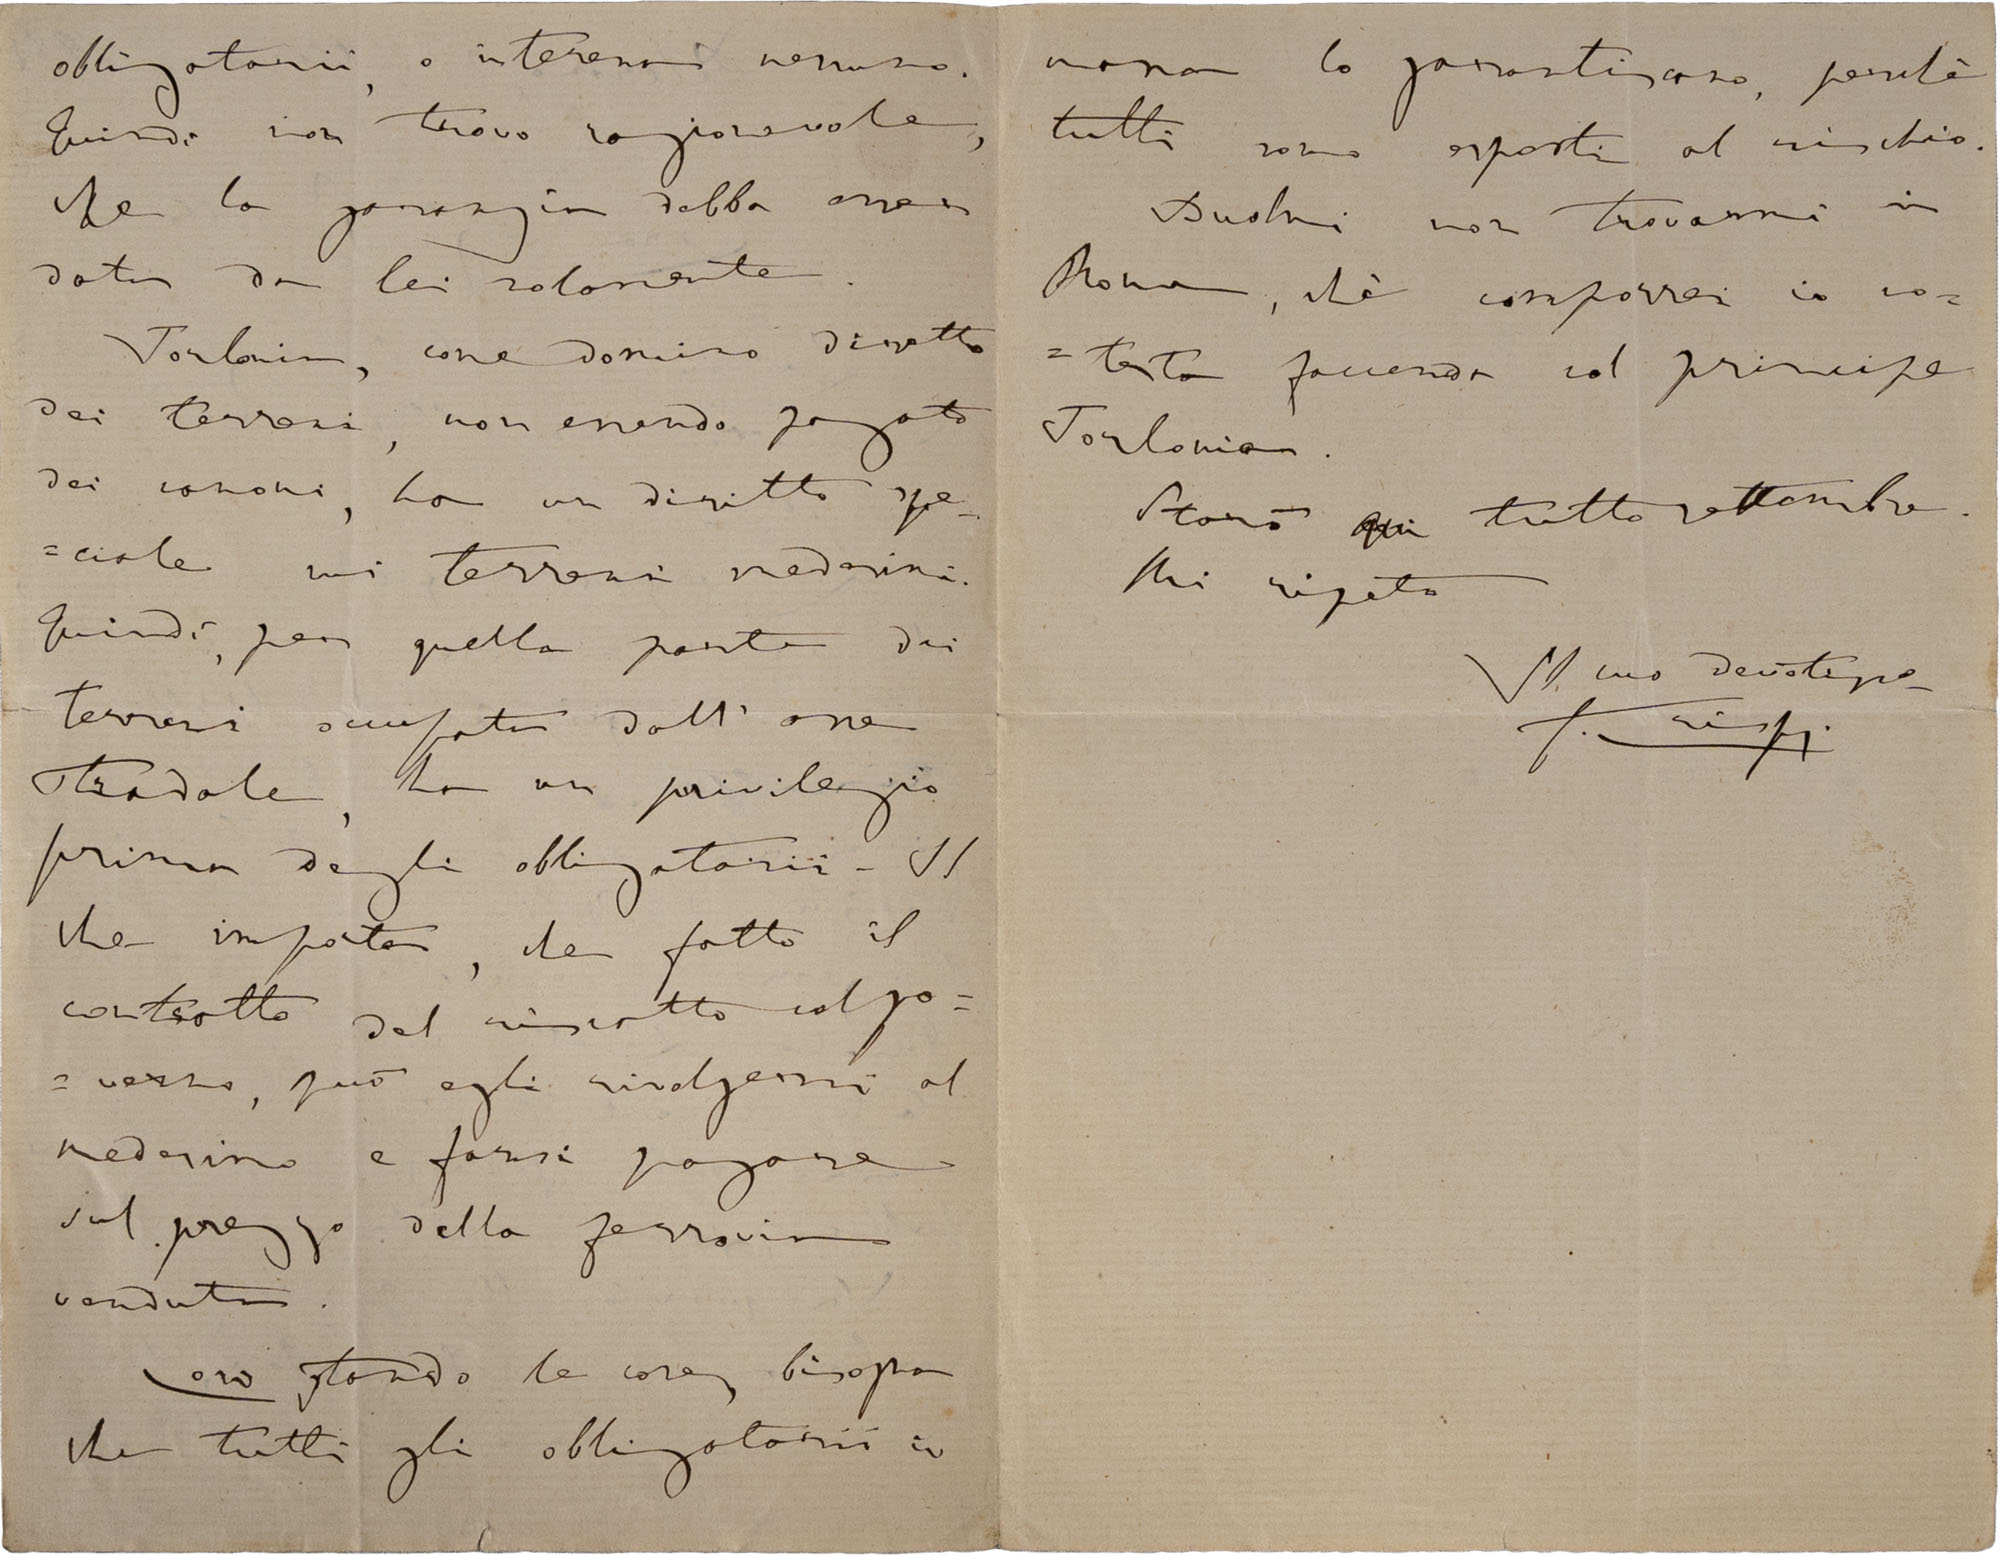 obbligatarii, o interessi nessuno.
Quindi non trovo ragionevole,
che la garanzia debba esser
data da lei solamente.
Torlonia, come domino diretto
dei terreni, non essendo pagato
dei canoni, ha un diritto spe=
=ciale sui terreni medesimi.
Quindi, per quella parte dei
terreni occupata dall'asse
stradale, ha un privilegio
prima degli obbligatarii - Il
che importa, che fatto il
contratto del riscatto col go=
=verno, può egli rivolgersi al
medesimo e farsi pagare
sul prezzo della ferrovia
venduta.
Così stando le cose, bisogna
che tutti gli obbligatarii in
massa lo garantiscano, perchè
tutti sono esposti al rischio.
Duolmi non trovarmi in
Roma, chè comporrei io co=
=testa faccenda col principe
Torlonia.
Starò qui tutto settembre.
Mi ripeto
Il suo devotissimo
F. Crispi.